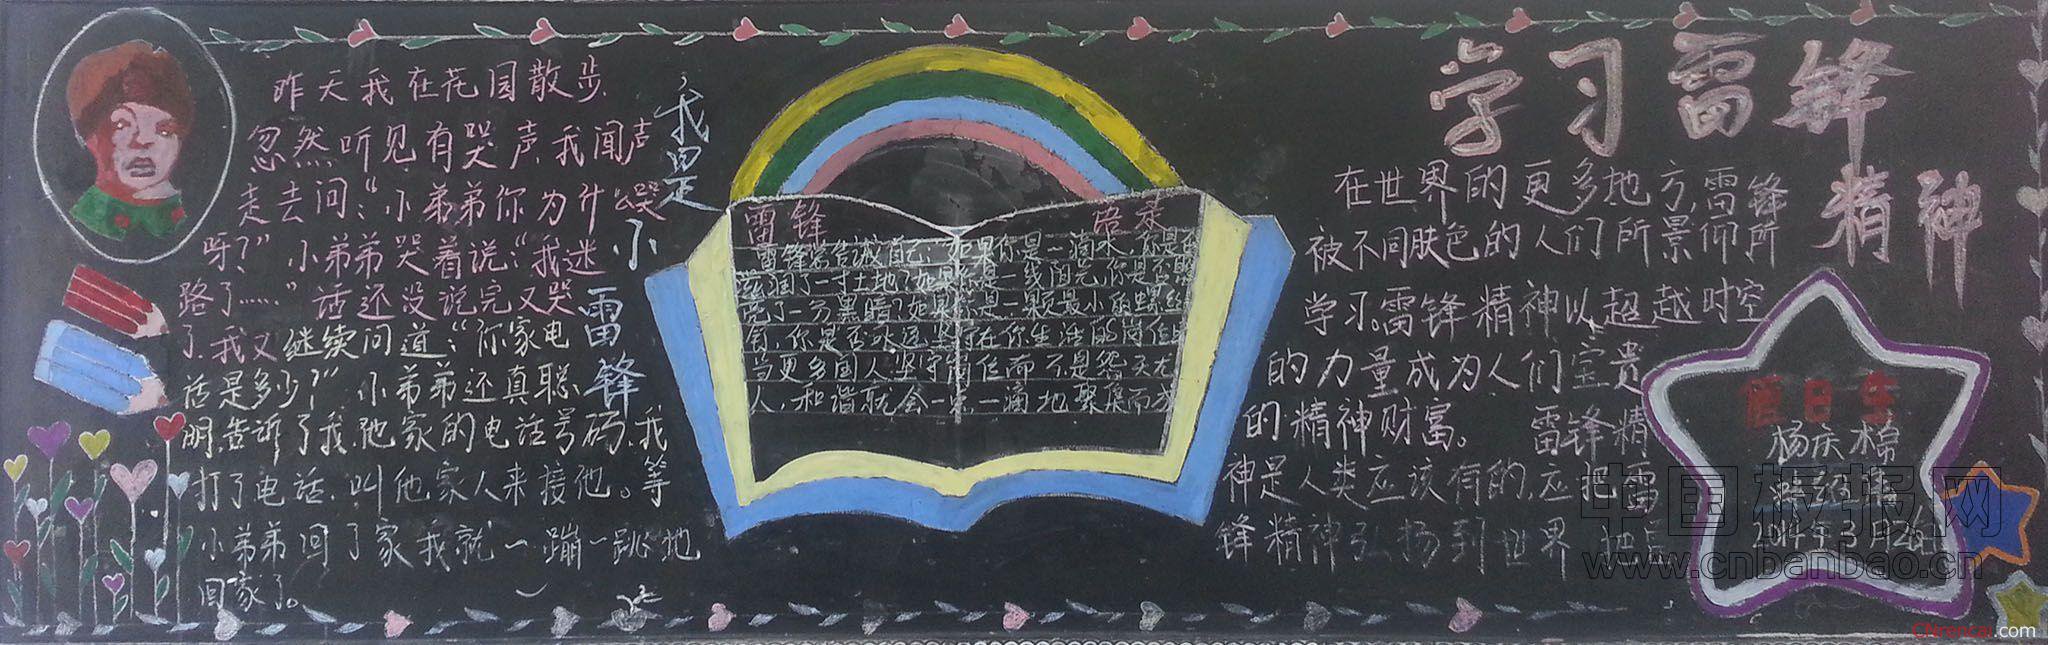 昨天我在花园散步
忽然听见有哭声，我闻声
走去问：“小弟弟你为什么哭
呀？”小弟弟哭着说：“我迷
路了……”话还没说完又哭
了，我又继续问道：“你家电
话是多少？”小弟弟还真聪
明，告诉了我，他家的电话号码，我
打了电话，叫他家人来接他。等
小弟弟回了家我就一蹦一跳地
回家了。
我是小雷锋
雷锋
雷锋常告诫自己：如果你是一滴水，你是否
滋润了一寸土地？如果你是一线阳光，你是否照
亮了一分黑暗？如果你是一颗最小的螺丝
钉，你是否永远坚守在你生活的岗位上
当更多国人坚守岗位而不是怨天尤
人，和谐就会一点一滴地聚集而来
学习雷锋
精神
在世界的更多地方，雷锋
被不同肤色的人们所景仰所
学习。雷锋精神以超越时空
的力量成为人们宝贵
的精神财富。 雷锋精
神是人类应该有的，应把雷
锋精神弘扬到世界
值日生
杨庆棉
2014年3月26日
中国板报网
www.cnbanbao.cn
Chrencai.com